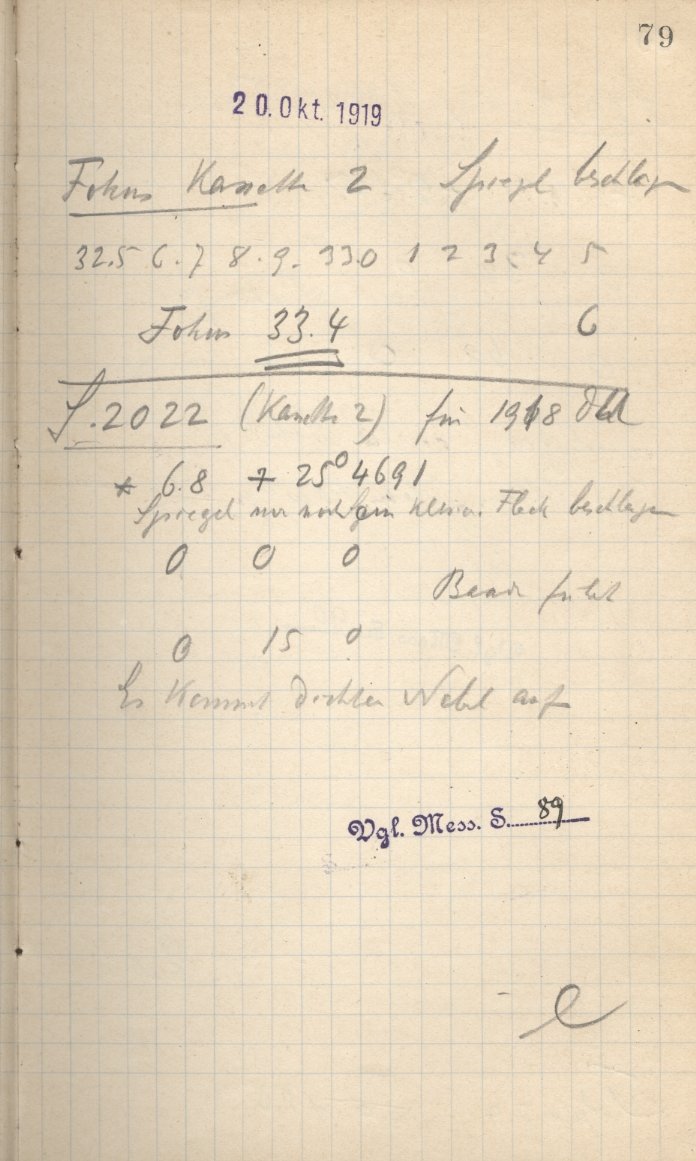 79
20. Okt. 1919
Fokus Kassette 2 Spiegel beschlagen
32.5 6.7 8.9. 33.0 1 2 3. 4 5
Fokus 33.4 6
S.2022 (Kassette 2) für 1918
* 6.8 + 25° 4691
Spiegel nur noch ein kleiner Fleck beschlagen
0 0 0
Baade führt
0 15 0
Es kommt dichter Nebel auf
Vgl. Mess. S. 89